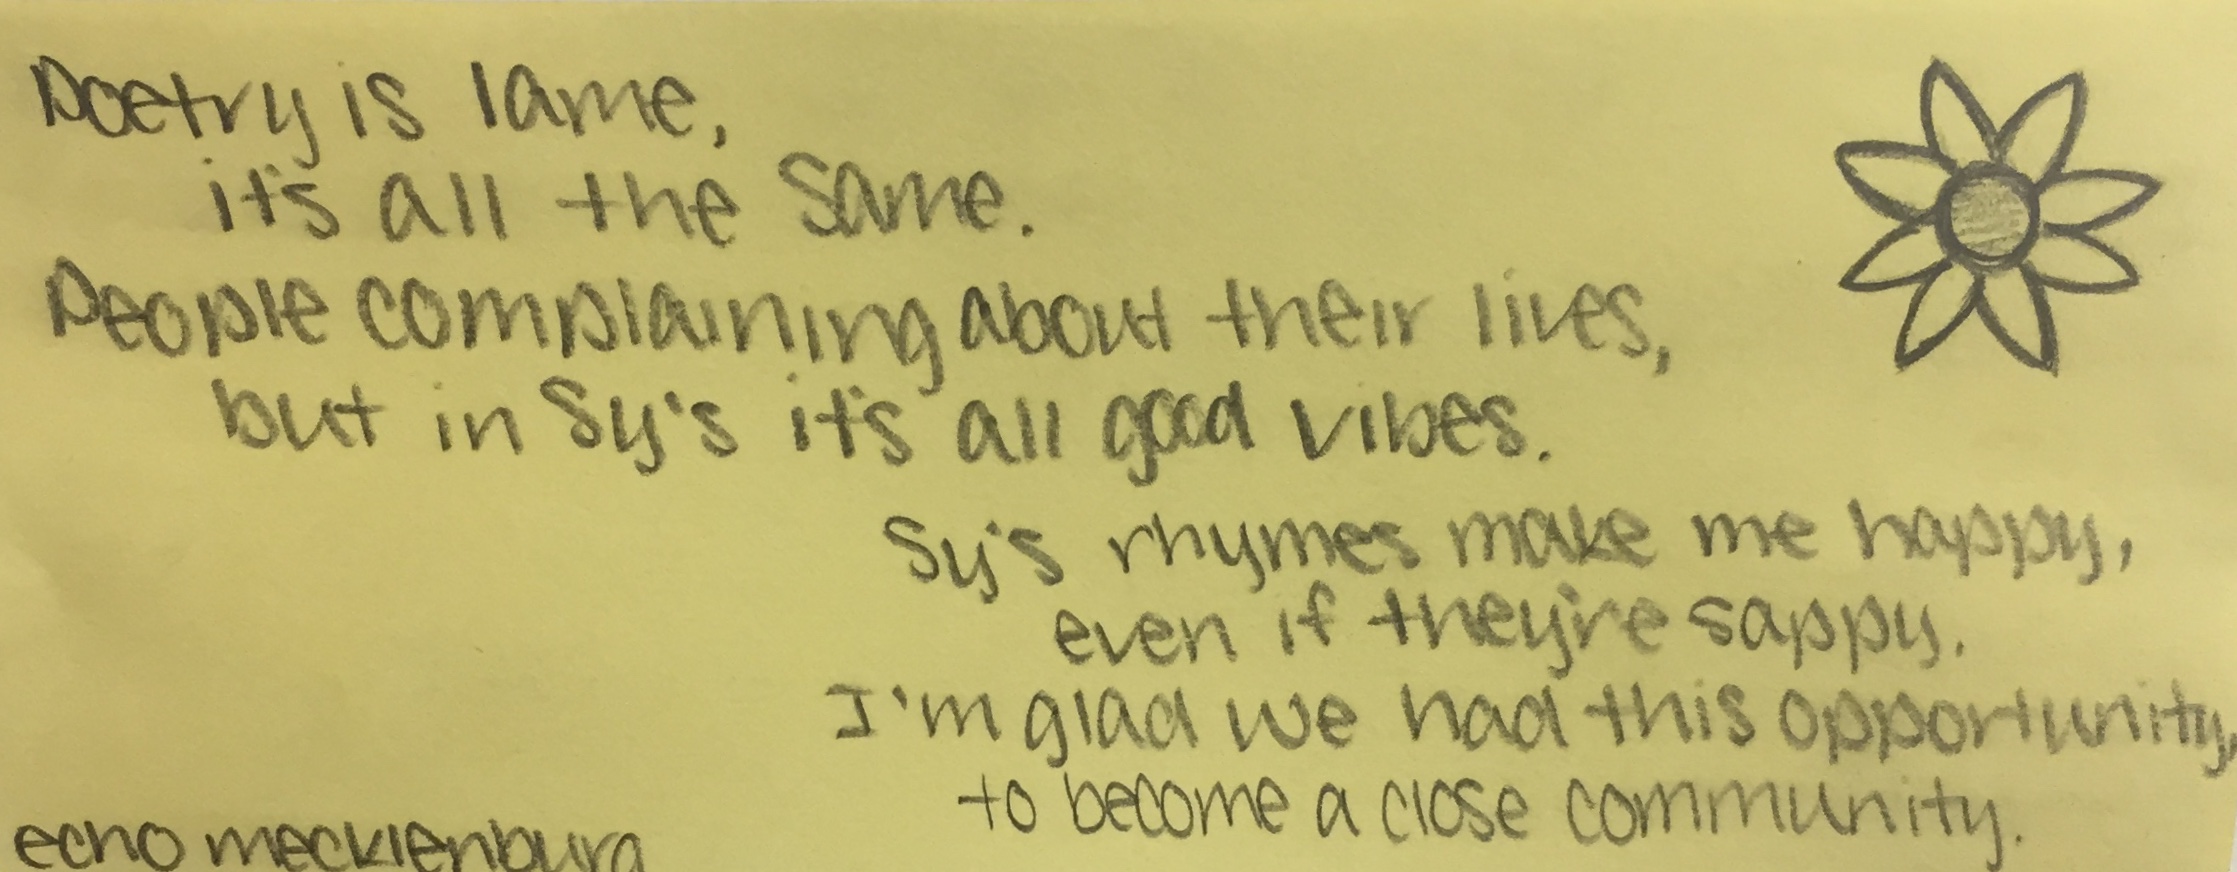 Poetry is lame,
it's all the same.
People complaining about their lives,
but in Sy's it's all good vibes.
Sy's rhymes make me happy,
even if they're sappy.
I'm glad we had this opportunity,
to become a close community.
echo mecklenburg